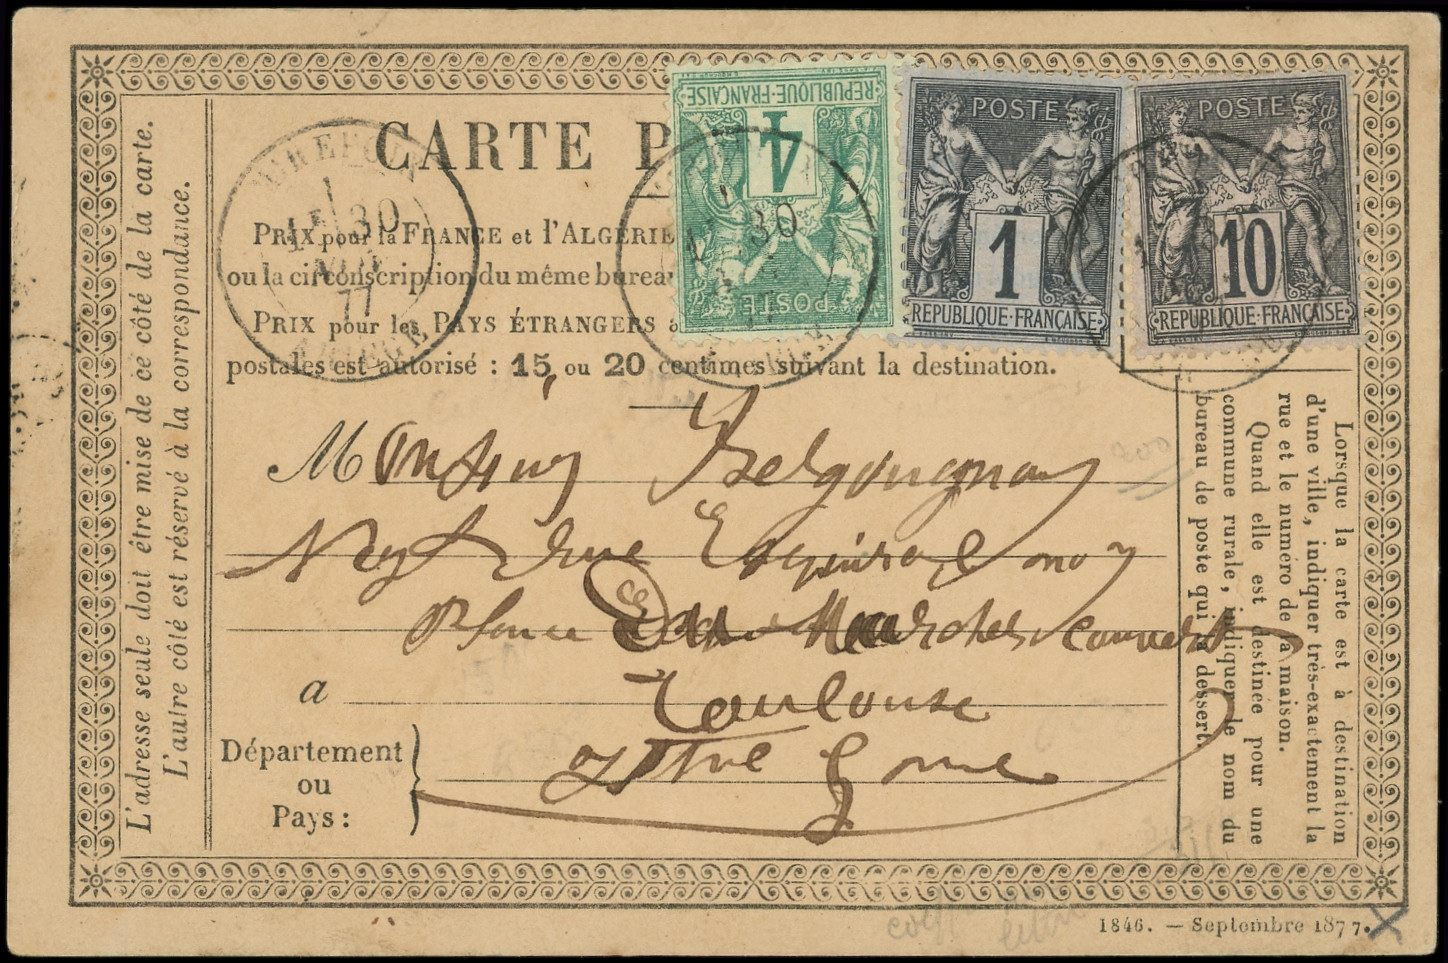 CARTE P
PRIX pour la FRANCE et l'ALGÉRIE
ou la circonscription du même burea
PRIX pour les PAYS ÉTRANGERS a
postales est autorisé : 15 ou 20 centimes suivant la destination.
RÉPUBLIQUE·FRANÇAISE
4
POSTE
POSTE
1
RÉPUBLIQUE·FRANÇAISE
POSTE
10
RÉPUBLIQUE·FRANÇAISE
MIREPOIX
1
E 30
NOV
77
ARIÈGE
30
L'adresse seule doit être mise de ce côté de la carte.
L'autre côté est réservé à la correspondance.
Monsieur
rue Esquirol no 7
Place Marches couvert
a Toulouse
Département
ou
Pays :
Lorsque la carte est à destination
d'une ville, indiquer très-exactement la
rue et le numéro de la maison.
Quand elle est destinée pour une
commune rurale, indiquer le nom du
bureau de poste qui la dessert.
200
1846. — Septembre 1877.